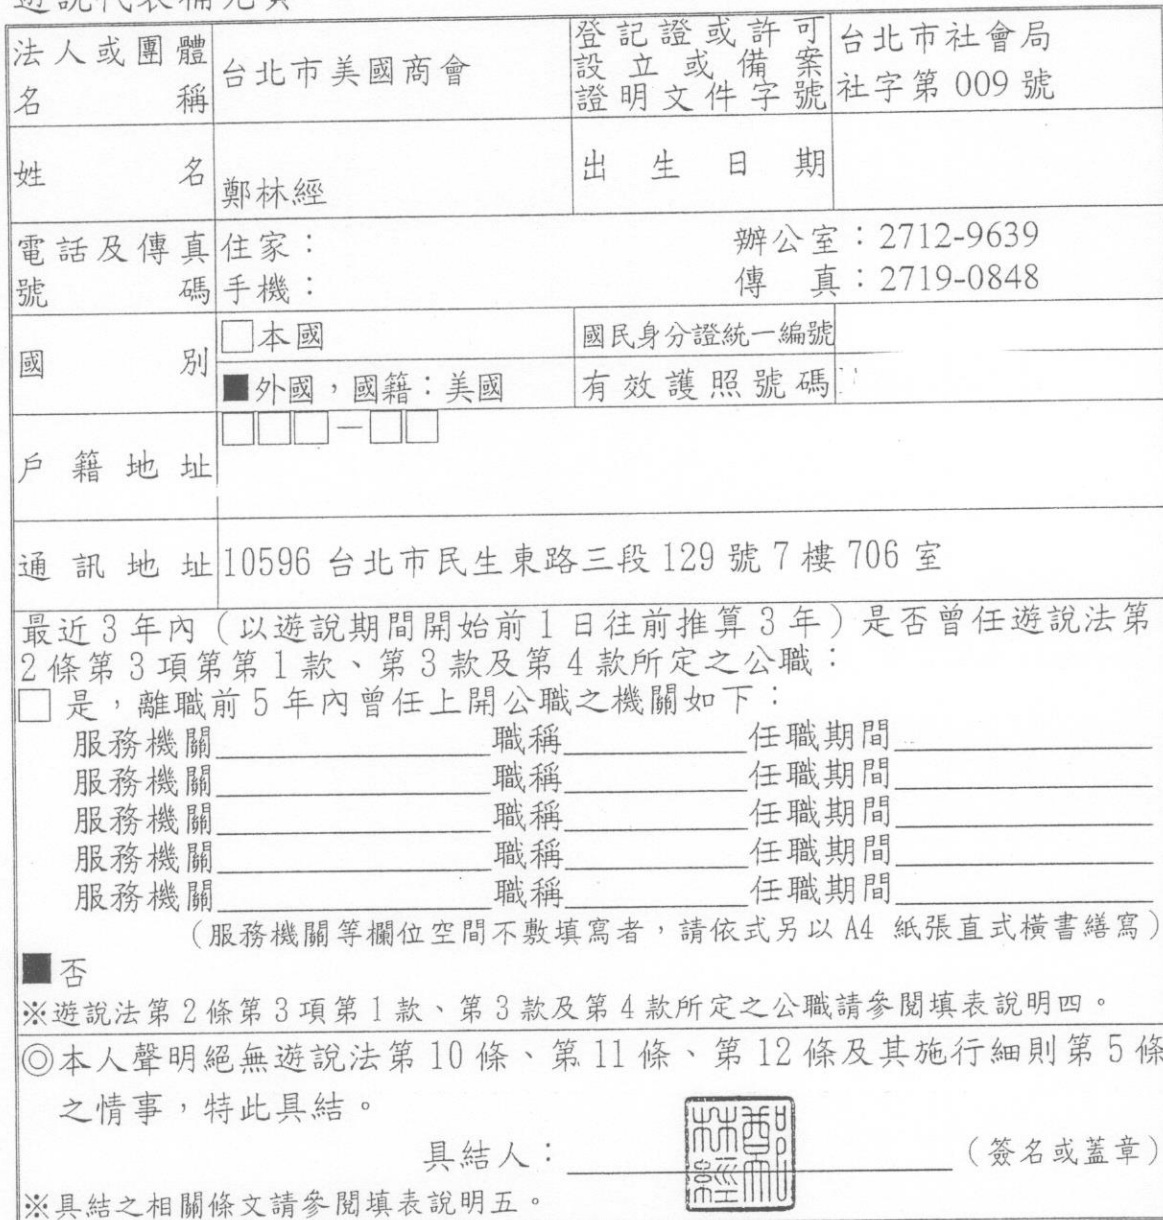 遊說代表補充頁
法人或團體名稱 台北市美國商會 登記證或許可設立或備案證明文件字號 台北市社會局社字第 009 號
姓名 鄭林經 出生日期
電話及傳真號碼 住家： 辦公室：2712-9639
手機： 傳真：2719-0848
國別 □本國 國民身分證統一編號
■外國，國籍：美國 有效護照號碼
戶籍地址 □□□—□□
通訊地址 10596 台北市民生東路三段 129 號 7 樓 706 室
最近 3 年內（以遊說期間開始前 1 日往前推算 3 年）是否曾任遊說法第
2 條第 3 項第第 1 款、第 3 款及第 4 款所定之公職：
□ 是，離職前 5 年內曾任上開公職之機關如下：
服務機關 職稱 任職期間
服務機關 職稱 任職期間
服務機關 職稱 任職期間
服務機關 職稱 任職期間
服務機關 職稱 任職期間
（服務機關等欄位空間不敷填寫者，請依式另以 A4 紙張直式橫書繕寫）
■否
※遊說法第 2 條第 3 項第 1 款、第 3 款及第 4 款所定之公職請參閱填表說明四。
◎本人聲明絕無遊說法第 10 條、第 11 條、第 12 條及其施行細則第 5 條
之情事，特此具結。
具結人： 鄭林經 （簽名或蓋章）
※具結之相關條文請參閱填表說明五。